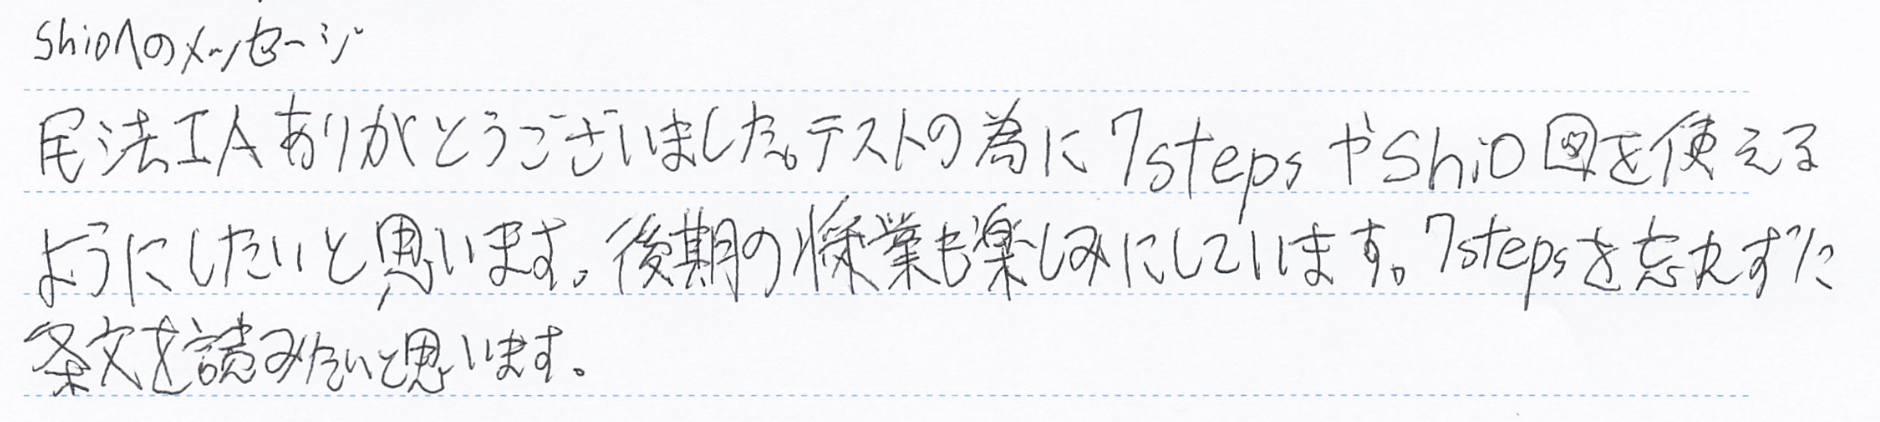 shioへのメッセージ
民法IAありがとうございました。テストの為に7stepsやshio図を使える
ようにしたいと思います。後期の授業も楽しみにしています。7stepsを忘れずに
条文を読みたいと思います。